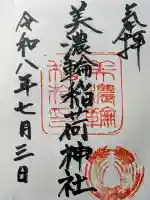 奉拝
美濃輪稲荷神社
令和八年七月三日